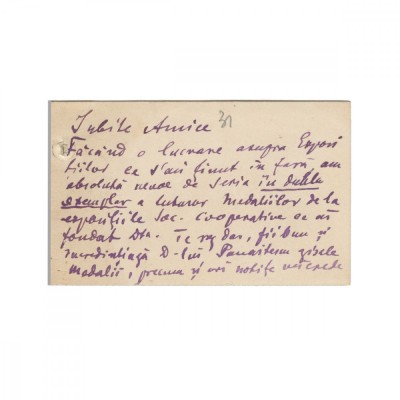 Iubite Amice 31
Făcând o lucrare asupra Expozi
țiilor ce s'au ținut în țară, am
absolută nevoe de seria în dublu
exemplar a tuturor medaliilor de la
expozițiile Soc. cooperative ce ați
fondat Dta. Te rog dar, fii bun și
încredințează D-lui Panaitescu zisele
medalii, precum și ori notițe